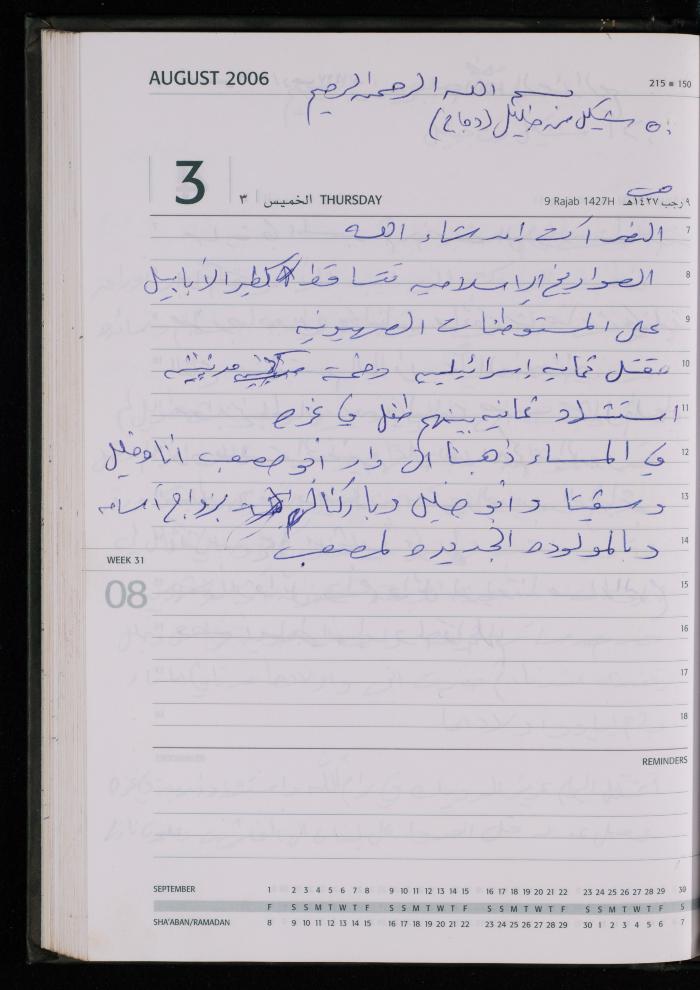 AUGUST 2006
215 ▪ 150
بسم الله الرحمن الرحيم
٥٠ شيكل من خليل (دجاج)
3 ٣ الخميس THURSDAY
9 Rajab 1427H ٩ رجب ١٤٢٧هـ
7 ان شاء الله
8 الصواريخ الإسلامية تتساقط كطير الأبابيل
9 على المستوطنات الصهيونية
10 مقتل ثمانية إسرائيليين وخمسة مدنيين
11 استشهاد ثمانية بينهم طفل في غزة
12 في المساء ذهبنا الى دار أبو مصعب أنا وخليل
13 وسقيتا وأبو خليل وباركنا بزواج أسامه
14 وبالمولوده الجديده لمصعب
WEEK 31
08
15
16
17
18
REMINDERS
SEPTEMBER 1 2 3 4 5 6 7 8 9 10 11 12 13 14 15 16 17 18 19 20 21 22 23 24 25 26 27 28 29 30
F S S M T W T F S S M T W T F S S M T W T F S S M T W T F S
SHA'ABAN/RAMADAN 8 9 10 11 12 13 14 15 16 17 18 19 20 21 22 23 24 25 26 27 28 29 30 1 2 3 4 5 6 7